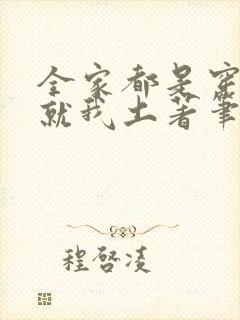 全家都是穿
就我土著筆
程啓凌